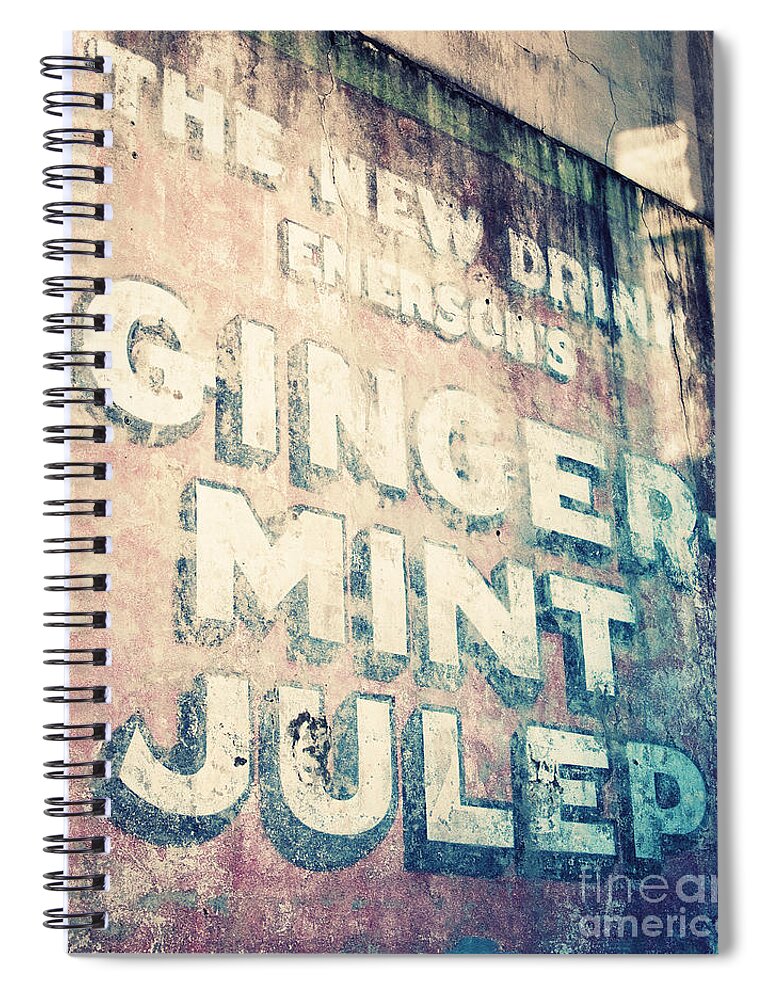 THE NEW DRINK
EMERSON'S
GINGER-
MINT
JULEP
fine ar
america